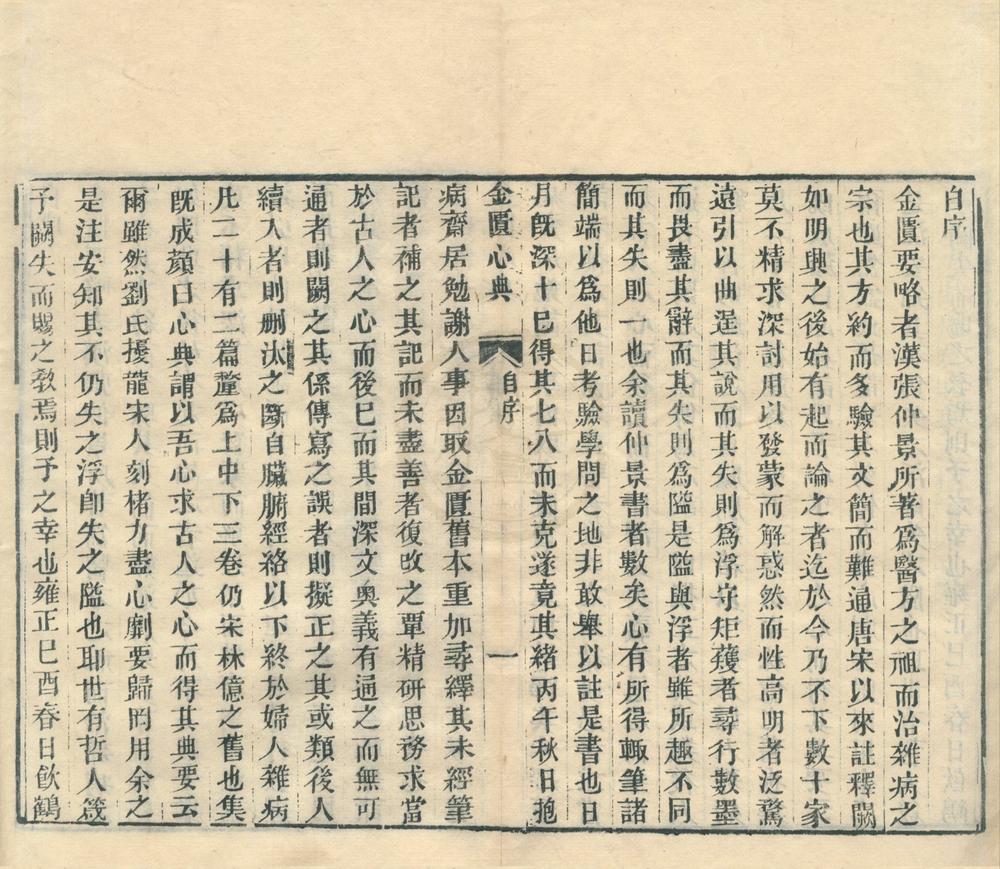 自序
金匱要略者漢張仲景所著爲醫方之祖而治雜病之
宗也其方約而多驗其文簡而難通唐宋以來註釋闕
如明興之後始有起而論之者迄於今乃不下數十家
莫不精求深討用以發蒙而解惑然而性高明者泛騖
遠引以曲逞其說而其失則爲浮守矩矱者尋行數墨
而畏盡其辭而其失則爲隘是隘與浮者雖所趣不同
而其失則一也余讀仲景書者數矣心有所得輙筆諸
簡端以爲他日考驗學問之地非敢舉以註是書也日
月旣深十已得其七八而未克遂竟其緒丙午秋日抱
金匱心典 自序 一
病齋居勉謝人事因取金匱舊本重加尋繹其未經筆
記者補之其記而未盡善者復改之覃精研思務求當
於古人之心而後已而其間深文奧義有通之而無可
通者則闕之其係傳寫之誤者則擬正之其或類後人
續入者則刪汰之斷自臟腑經絡以下終於婦人雜病
凡二十有二篇釐爲上中下三卷仍宋林億之舊也集
旣成顔曰心典謂以吾心求古人之心而得其典要云
爾雖然劉氏擾龍宋人刻楮力盡心劌要歸罔用余之
是注安知其不仍失之浮卽失之隘也耶世有哲人箴
予闕失而賜之敎焉則予之幸也雍正巳酉春日飮鶴